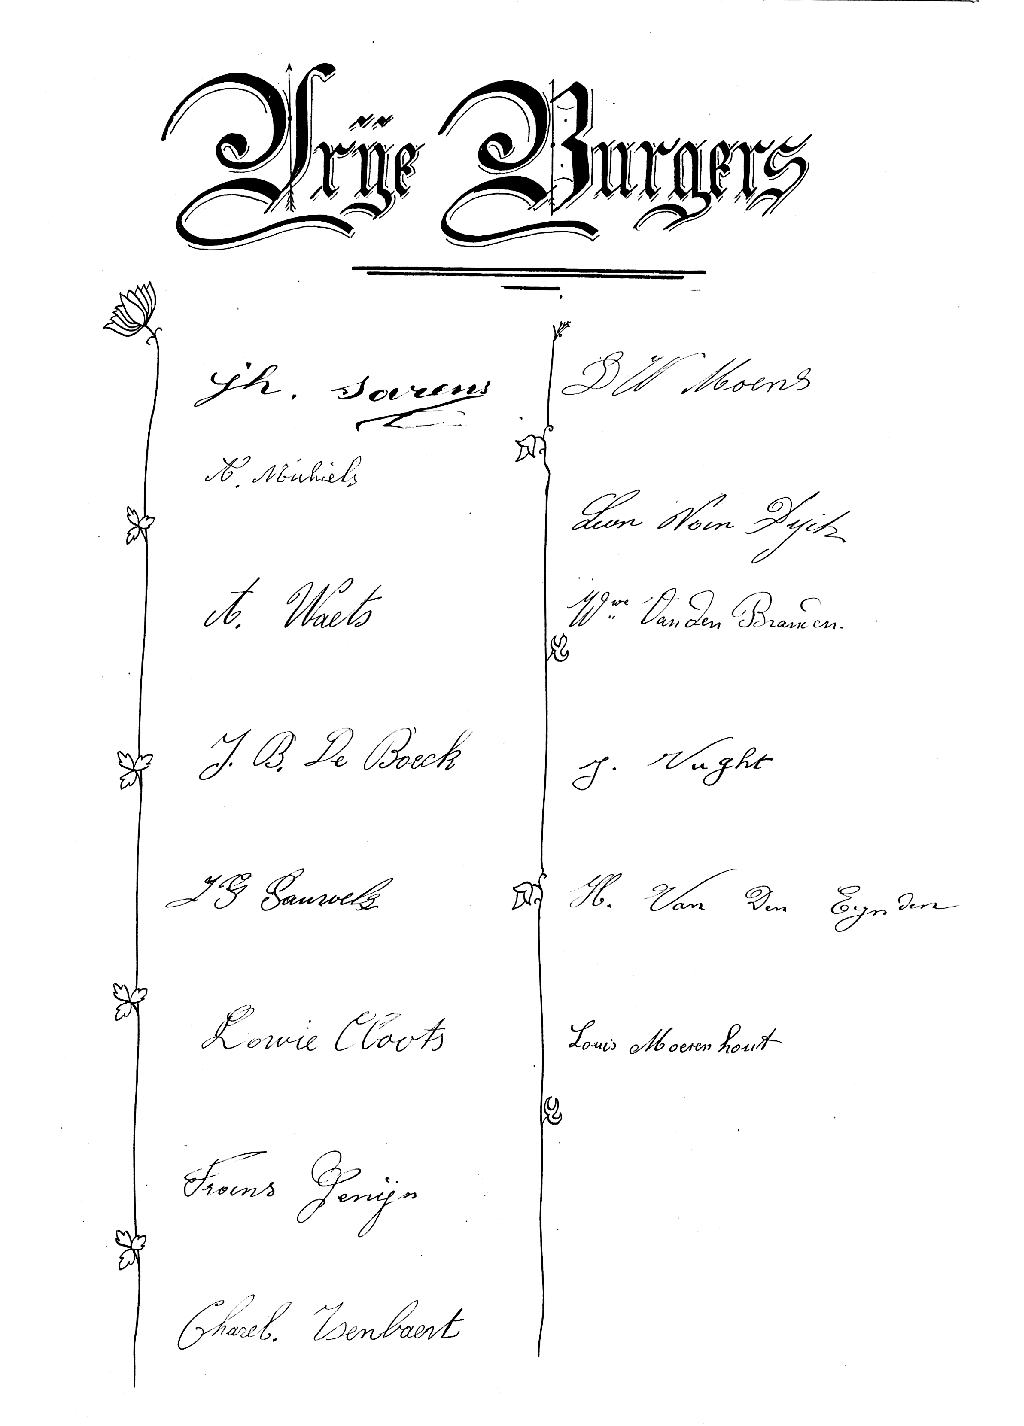 Vrÿe Burgers
Jh. Sarens
A. Michiels
A. Waets
J. B. De Boeck
J G Sauwels
Lowie Cloots
Frans Zenijn
Charel. Isenbaert
D W Moens
Leon Van Dijck
Wwe Van den Branden.
J. Vught
H. Van Den Eynden
Louis Moerenhout